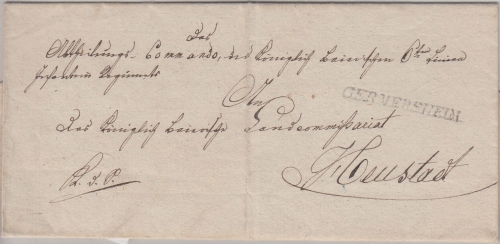 Das
Abtheilungs-Commando, des Königlich Baierischen 6ten Linien
Infanterie Regiments
An
GERMERSHEIM.
Das Königlich Baierische Landcommissariat
Neustadt
R. d. S.